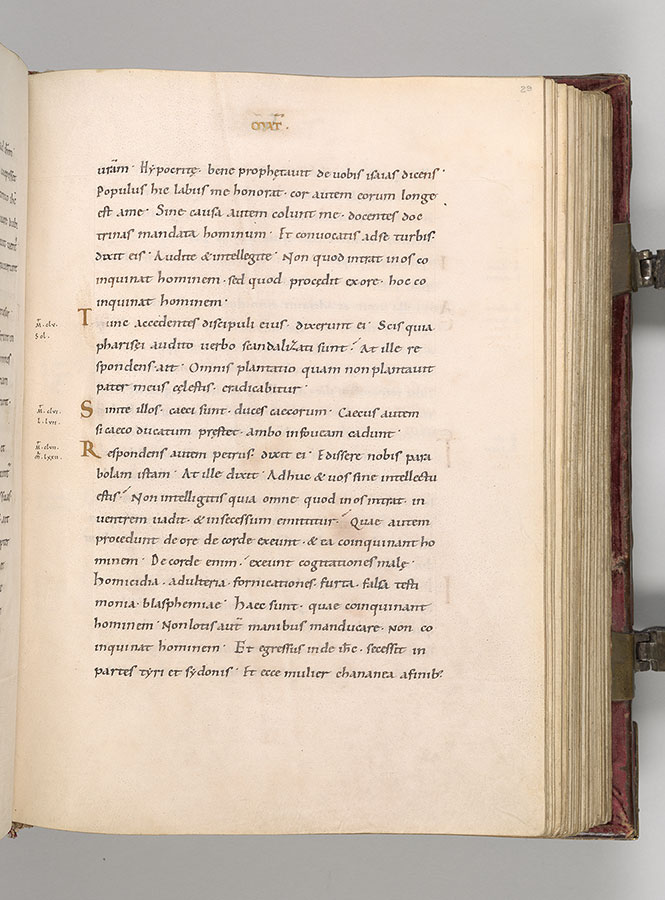 29
MAT.
uram. Hypocritę. bene prophetauit de uobis isaias dicens.
Populus hic labiis me honorat. cor autem eorum longe
est ame. Sine causa autem colunt me. docentes doc
trinas mandata hominum. Et conuocatis adse turbis.
dixit eis. Audite & intellegite. Non quod intrat in os co
inquinat hominem. sed quod procędit ex ore. hoc co
inquinat hominem.
Tunc accedentes discipuli eius. dixerunt ei. Scis quia
pharisęi audito uerbo scandalizati sunt? At ille re
spondens. ait. Omnis plantatio quam non plantauit
pater meus cęlestis. eradicabitur.
Sinite illos. caeci sunt. duces caecorum. Caecus autem
si caeco ducatum pręstet. ambo in foueam cadunt.
Respondens autem petrus. dixit ei. Edissere nobis para
bolam istam. At ille dixit. Adhuc & uos sine intellectu
estis? Non intelligitis quia omne quod in os intrat. in
uentrem uadit. & insecessum emittitur? Quae autem
procedunt de ore de corde exeunt. & ea coinquinant ho
minem. De corde enim. exeunt cogitationes malę.
homicidia. adulteria. fornicationes. furta. falsa testi
monia. blasphemiae. haec sunt. quae coinquinant
hominem. Non lotis aut̄ manibus manducare. non co
inquinat hominem. Et egressus inde ih̄c. secessit in
partes tyri et sydonis. Et ecce mulier chananea a finib;